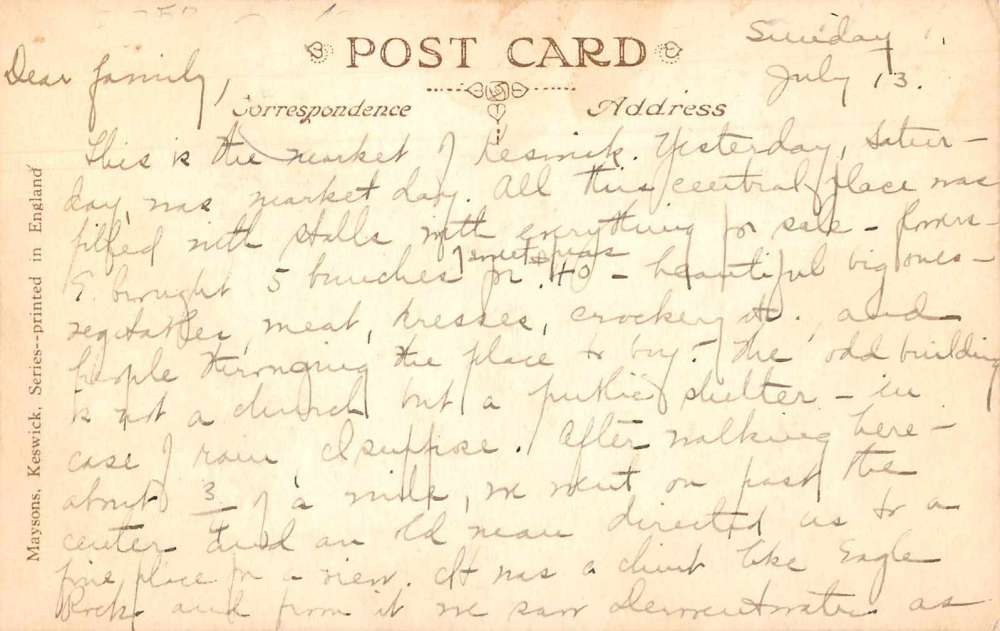 POST CARD
Sunday
July 13.
Dear family,
Correspondence
Address
This is the market of Keswick. Yesterday, Satur-
day, was market day. All this central place was
filled with stalls with everything for sale - flowers -
sweet peas
E. brought 5 bunches for .40 - beautiful big ones -
vegetables, meat, dresses, crockery etc. and
people thronging the place to buy. The odd building
is not a church but a public shelter - in
case of rain, I suppose. After walking here -
about 3/4 of a mile, we went on past the
center and an old man directed us to a
fine place for a view. It was a climb like Eagle
Rock and from it we saw Derwentwater as
Maysons, Keswick, Series--printed in England